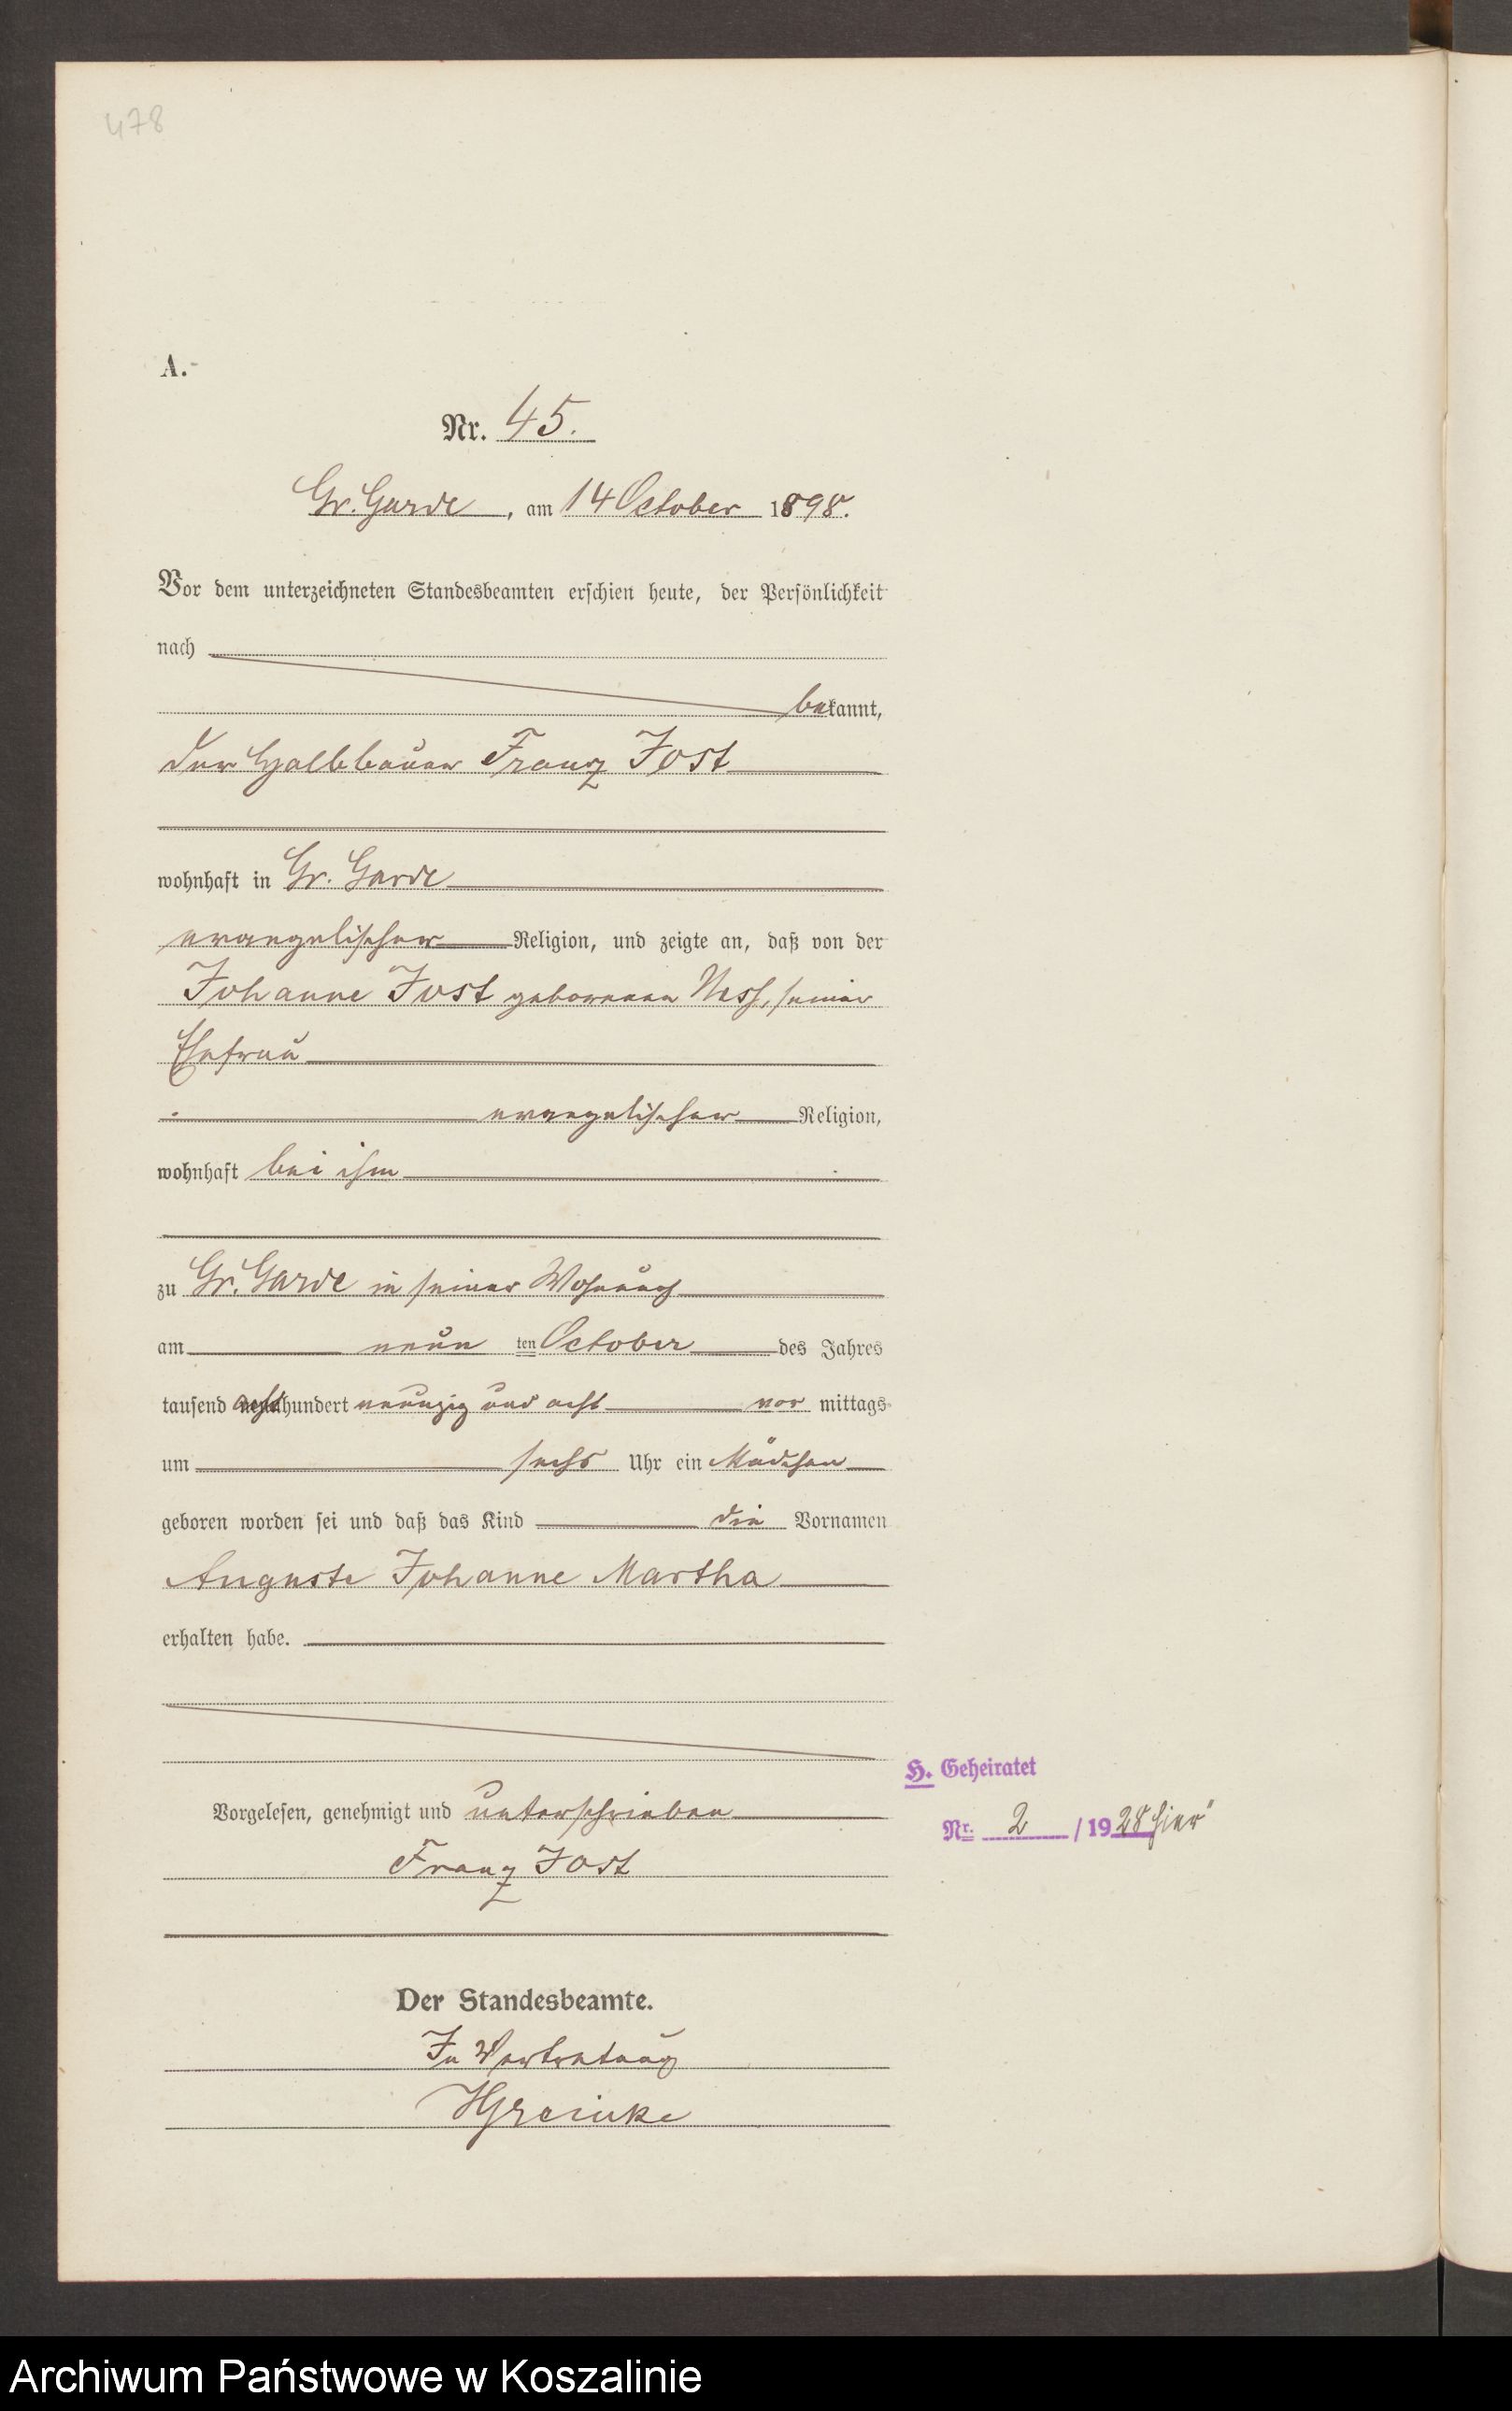 478
A.
Nr. 45.
Gr. Garde, am 14 October 1898.
Vor dem unterzeichneten Standesbeamten erschien heute, der Persönlichkeit
nach
bekannt,
der Halbbauer Franz Jost
wohnhaft in Gr. Garde
evangelischer Religion, und zeigte an, daß von der
Johanne Jost geborenen seiner
Ehefrau
evangelischer Religion,
wohnhaft bei ihm
zu Gr. Garde in seiner Wohnung
am neun ten October des Jahres
tausend achthundert neunzig und acht vor mittags
um sechs Uhr ein Mädchen
geboren worden sei und daß das Kind die Vornamen
Auguste Johanne Martha
erhalten habe.
H. Geheiratet
Vorgelesen, genehmigt und unterschrieben
Nr. 2 / 1928 hier
Franz Jost
Der Standesbeamte.
In Vertretung
Archiwum Państwowe w Koszalinie